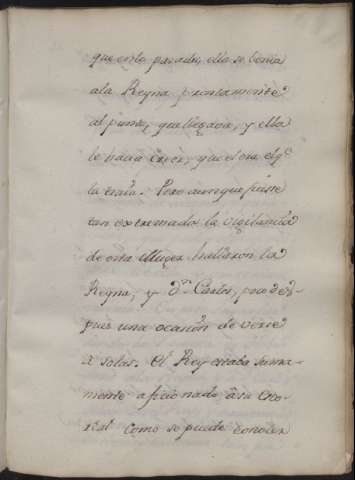 que en lo pasado, ella se venia
a la Reyna prontamente
al punto, que llegava, y ella
le hacia creer, que el era el qe
la traia. Pero aunque fuesse
tan extremada la vigilancia
de esta Muger hallaron la
Reyna, y Dn. Carlos, poco des-
pues una ocasion de verse
a solas. El Rey estaba suma-
mente aficionado â su Esco-
rial como se puede conocer